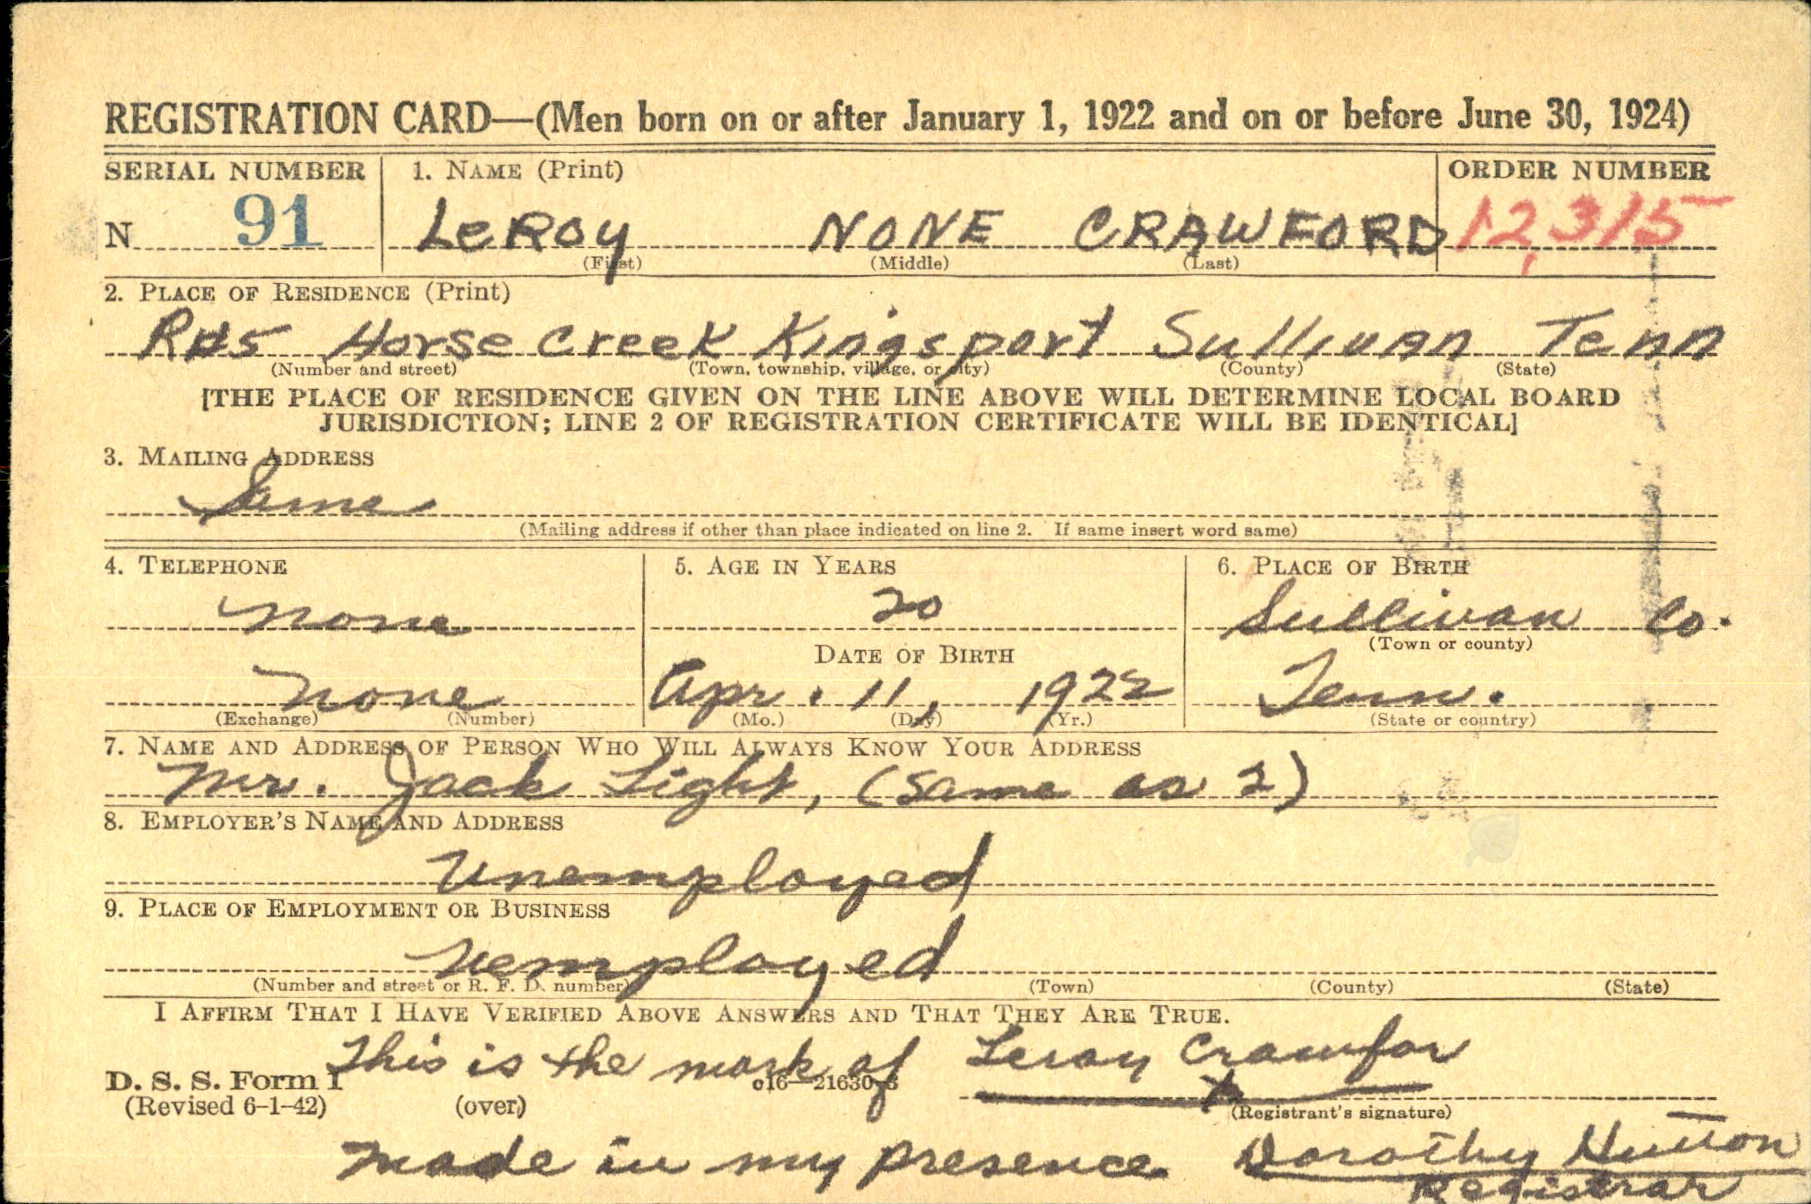 REGISTRATION CARD—(Men born on or after January 1, 1922 and on or before June 30, 1924)
SERIAL NUMBER 1. NAME (Print) ORDER NUMBER
N 91 LeROy NONE CRAWFORD 12,315
(First) (Middle) (Last)
2. PLACE OF RESIDENCE (Print)
R#5 Horse Creek Kingsport Sullivan Tenn
(Number and street) (Town, township, village, or city) (County) (State)
[THE PLACE OF RESIDENCE GIVEN ON THE LINE ABOVE WILL DETERMINE LOCAL BOARD
JURISDICTION; LINE 2 OF REGISTRATION CERTIFICATE WILL BE IDENTICAL]
3. MAILING ADDRESS
Same
(Mailing address if other than place indicated on line 2. If same insert word same)
4. TELEPHONE 5. AGE IN YEARS 6. PLACE OF BIRTH
None 20 Sullivan Co.
(Town or county)
DATE OF BIRTH
None Apr. 11, 1922 Tenn.
(Exchange) (Number) (Mo.) (Day) (Yr.) (State or country)
7. NAME AND ADDRESS OF PERSON WHO WILL ALWAYS KNOW YOUR ADDRESS
Mr. Jack Light, (Same as 2)
8. EMPLOYER'S NAME AND ADDRESS
Unemployed
9. PLACE OF EMPLOYMENT OR BUSINESS
Uemployed
(Number and street or R. F. D. number) (Town) (County) (State)
I AFFIRM THAT I HAVE VERIFIED ABOVE ANSWERS AND THAT THEY ARE TRUE.
This is the mark of Leroy Crawfor
D. S. S. Form 1 c16—21630-3 x
(Revised 6-1-42) (over) (Registrant's signature)
made in my presence Dorothy Hutton
Registrar